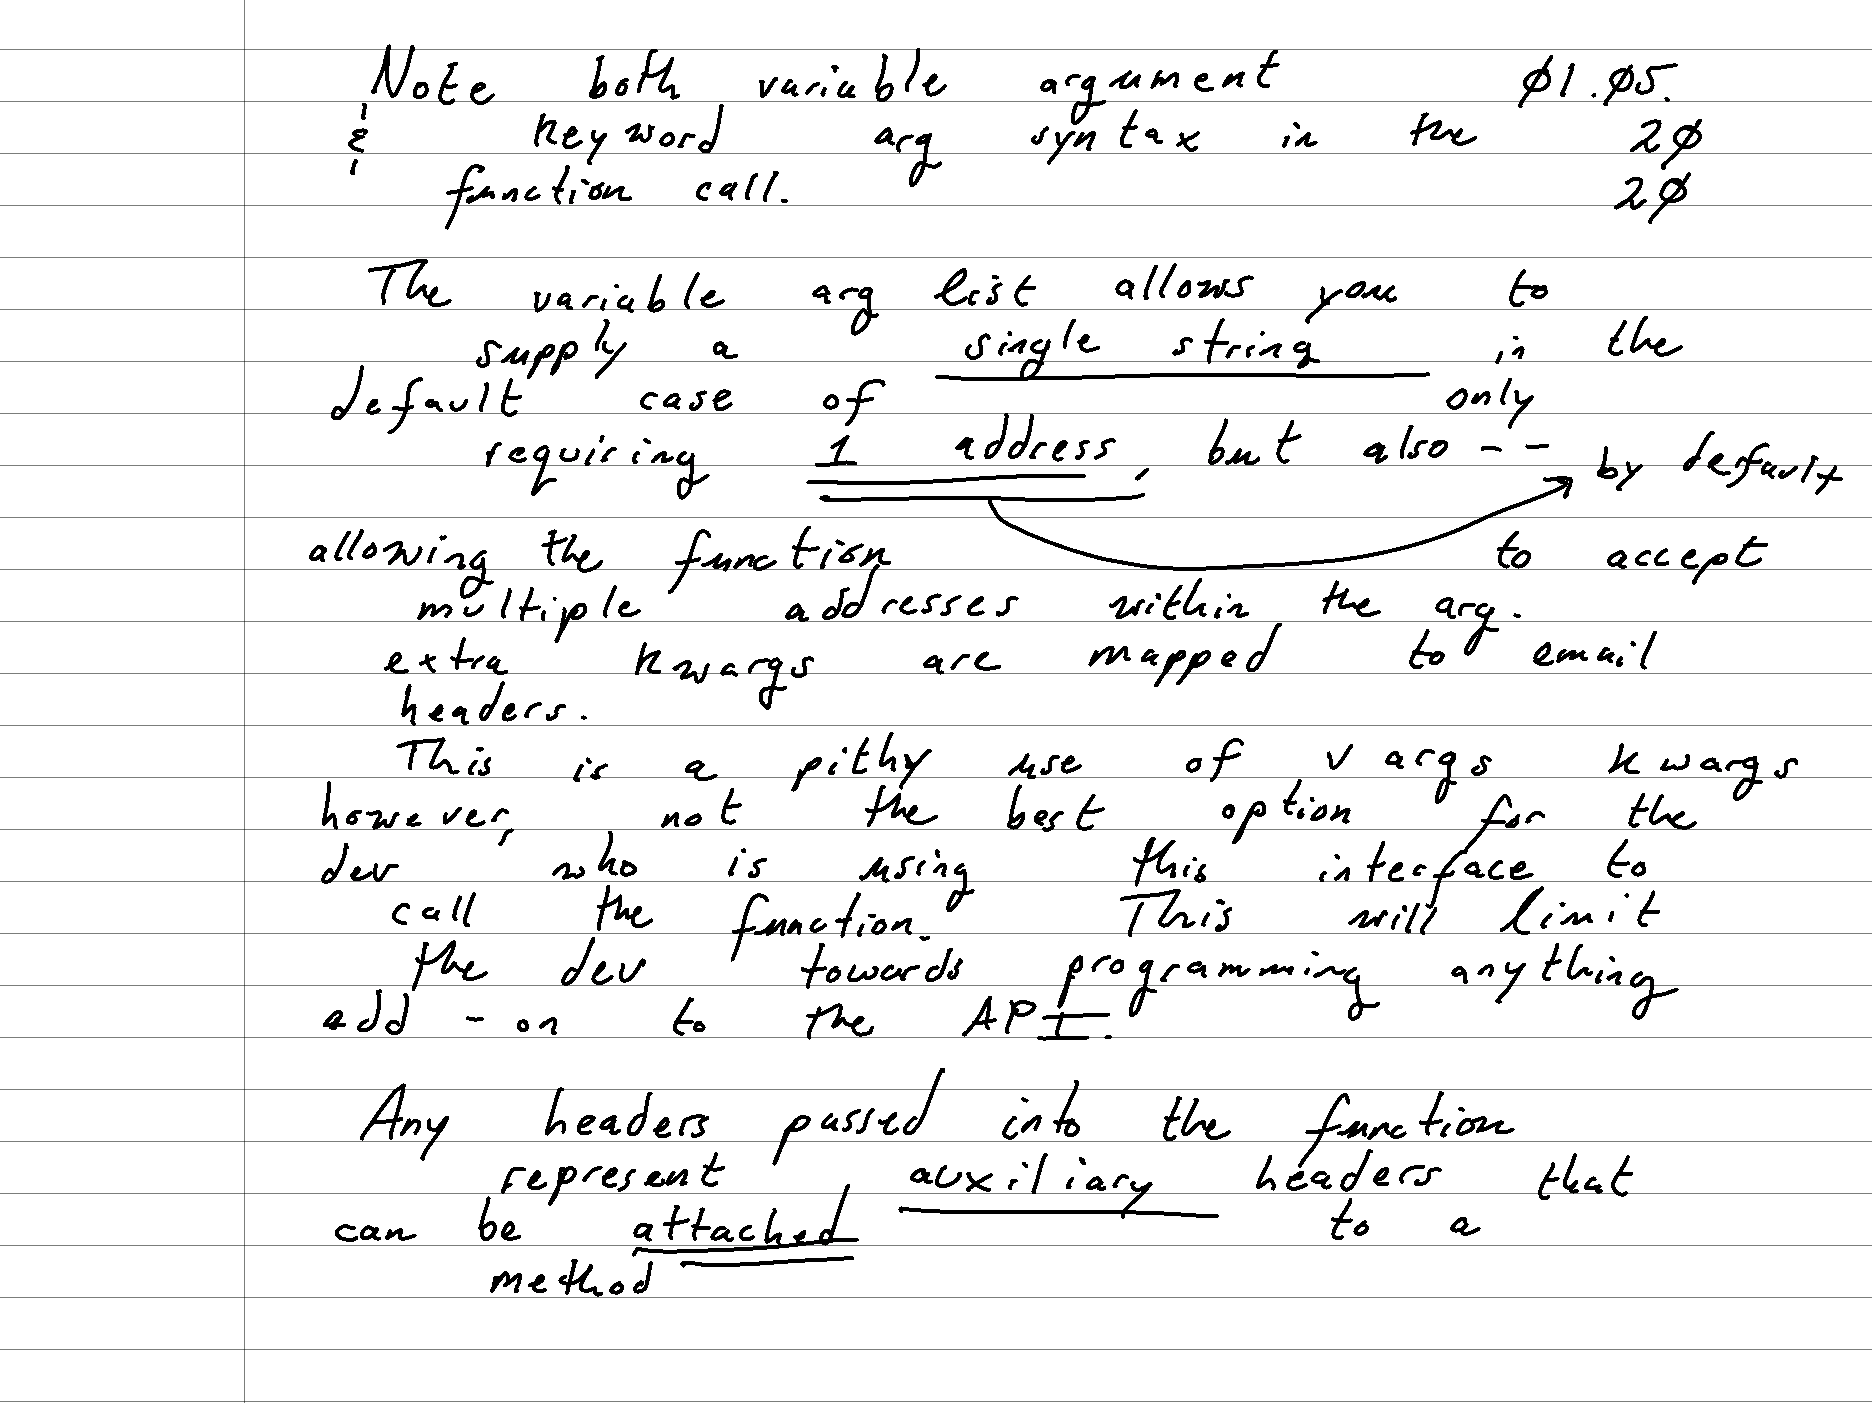 Note both variable argument Ø1.Ø5.
& keyword arg syntax in the 2Ø
function call. 2Ø
The variable arg list allows you to
supply a single string in the
default case of only
requiring 1 address, but also --
by default
allowing the function to accept
multiple addresses within the arg.
extra kwargs are mapped to email
headers.
This is a pithy use of vargs kwargs
however, not the best option for the
dev who is using this interface to
call the function. This will limit
the dev towards programming anything
add-on to the API.
Any headers passed into the function
represent auxiliary headers that
can be attached to a
method